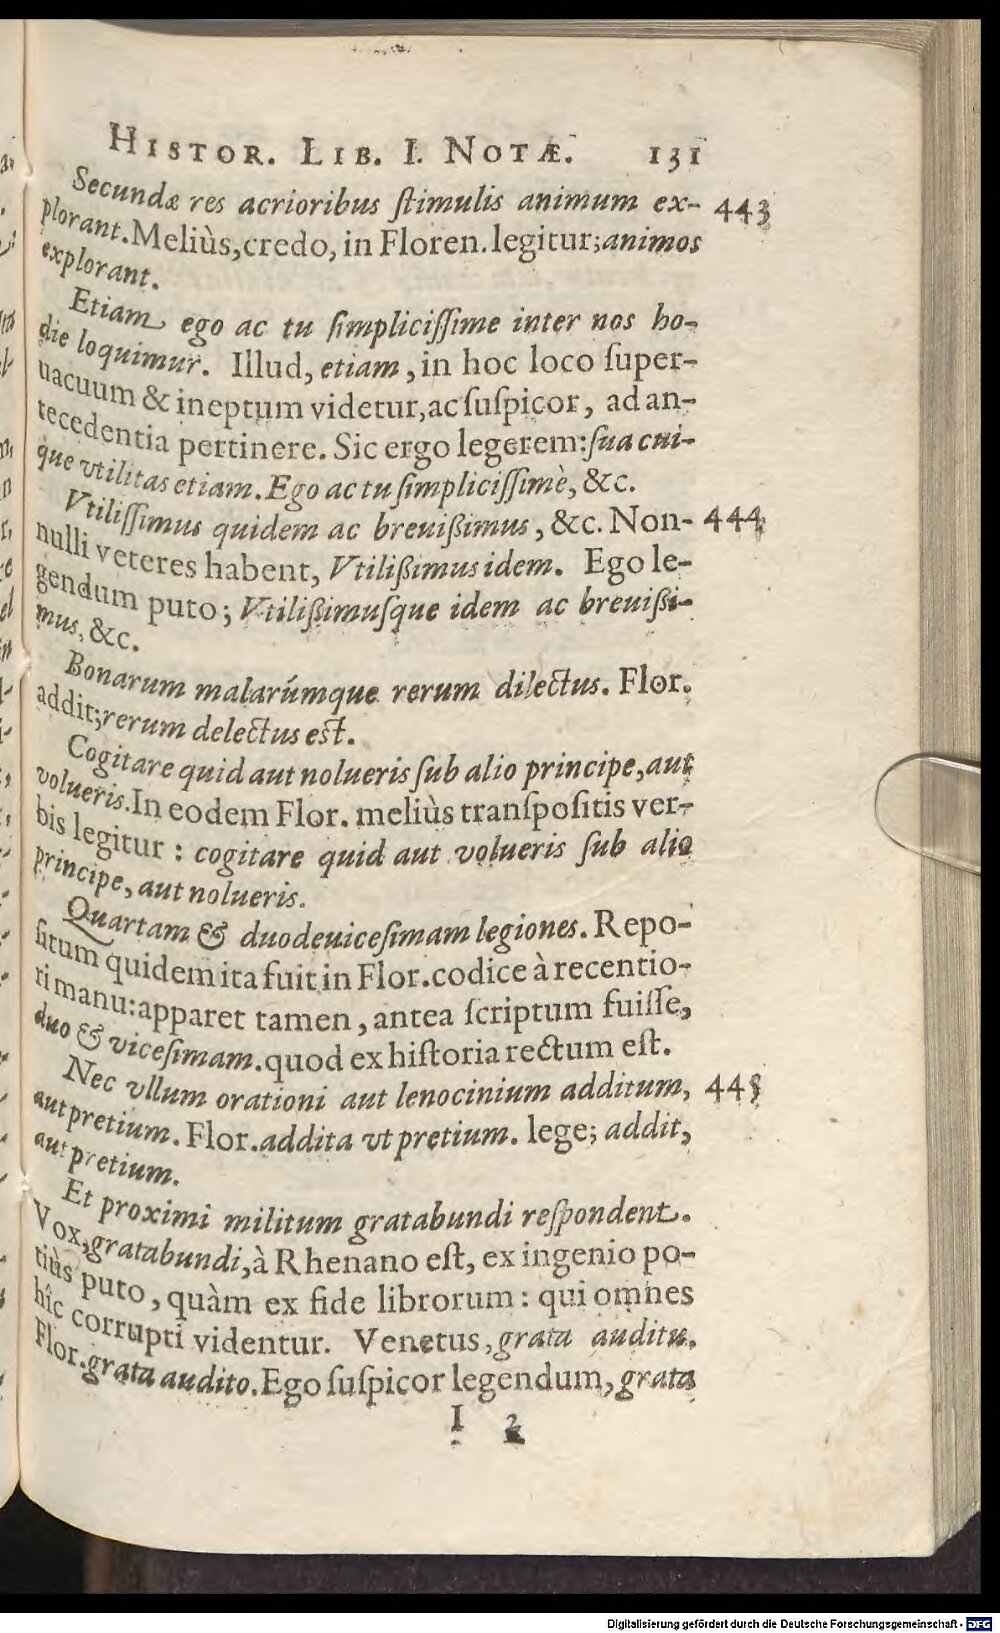 HISTOR. LIB. I. NOTÆ. 131
Secundæ res acrioribus ſtimulis animum ex- 443
plorant. Meliùs, credo, in Floren. legitur; animos
explorant.
Etiam ego ac tu ſimpliciſſime inter nos ho-
die loquimur. Illud, etiam, in hoc loco ſuper-
uacuum & ineptum videtur, ac ſuſpicor, ad an-
tecedentia pertinere. Sic ergo legerem: ſua cui-
que vtilitas etiam. Ego ac tu ſimpliciſſimè, &c.
Vtiliſſimus quidem ac breuißimus, &c. Non- 444
nulli veteres habent, Vtilißimus idem. Ego le-
gendum puto; Vtilißimuſque idem ac breuißi-
mus, &c.
Bonarum malarúmque rerum dilectus. Flor.
addit; rerum delectus eſt.
Cogitare quid aut nolueris ſub alio principe, aut
volueris. In eodem Flor. meliùs tranſpoſitis ver-
bis legitur: cogitare quid aut volueris ſub alio
principe, aut nolueris.
Quartam & duodeuiceſimam legiones. Repo-
ſitum quidem ita fuit in Flor. codice à recentio-
ri manu: apparet tamen, antea ſcriptum fuiſſe,
duo & viceſimam. quod ex hiſtoria rectum eſt.
Nec vllum orationi aut lenocinium additum, 445
aut pretium. Flor. addita vt pretium. lege; addit,
aut pretium.
Et proximi militum gratabundi reſpondent.
Vox, gratabundi, à Rhenano eſt, ex ingenio po-
tiùs puto, quàm ex fide librorum: qui omnes
hîc corrupti videntur. Venetus, grata auditu.
Flor. grata audito. Ego ſuſpicor legendum, grata
I 2
Digitalisierung gefördert durch die Deutsche Forschungsgemeinschaft - DFG